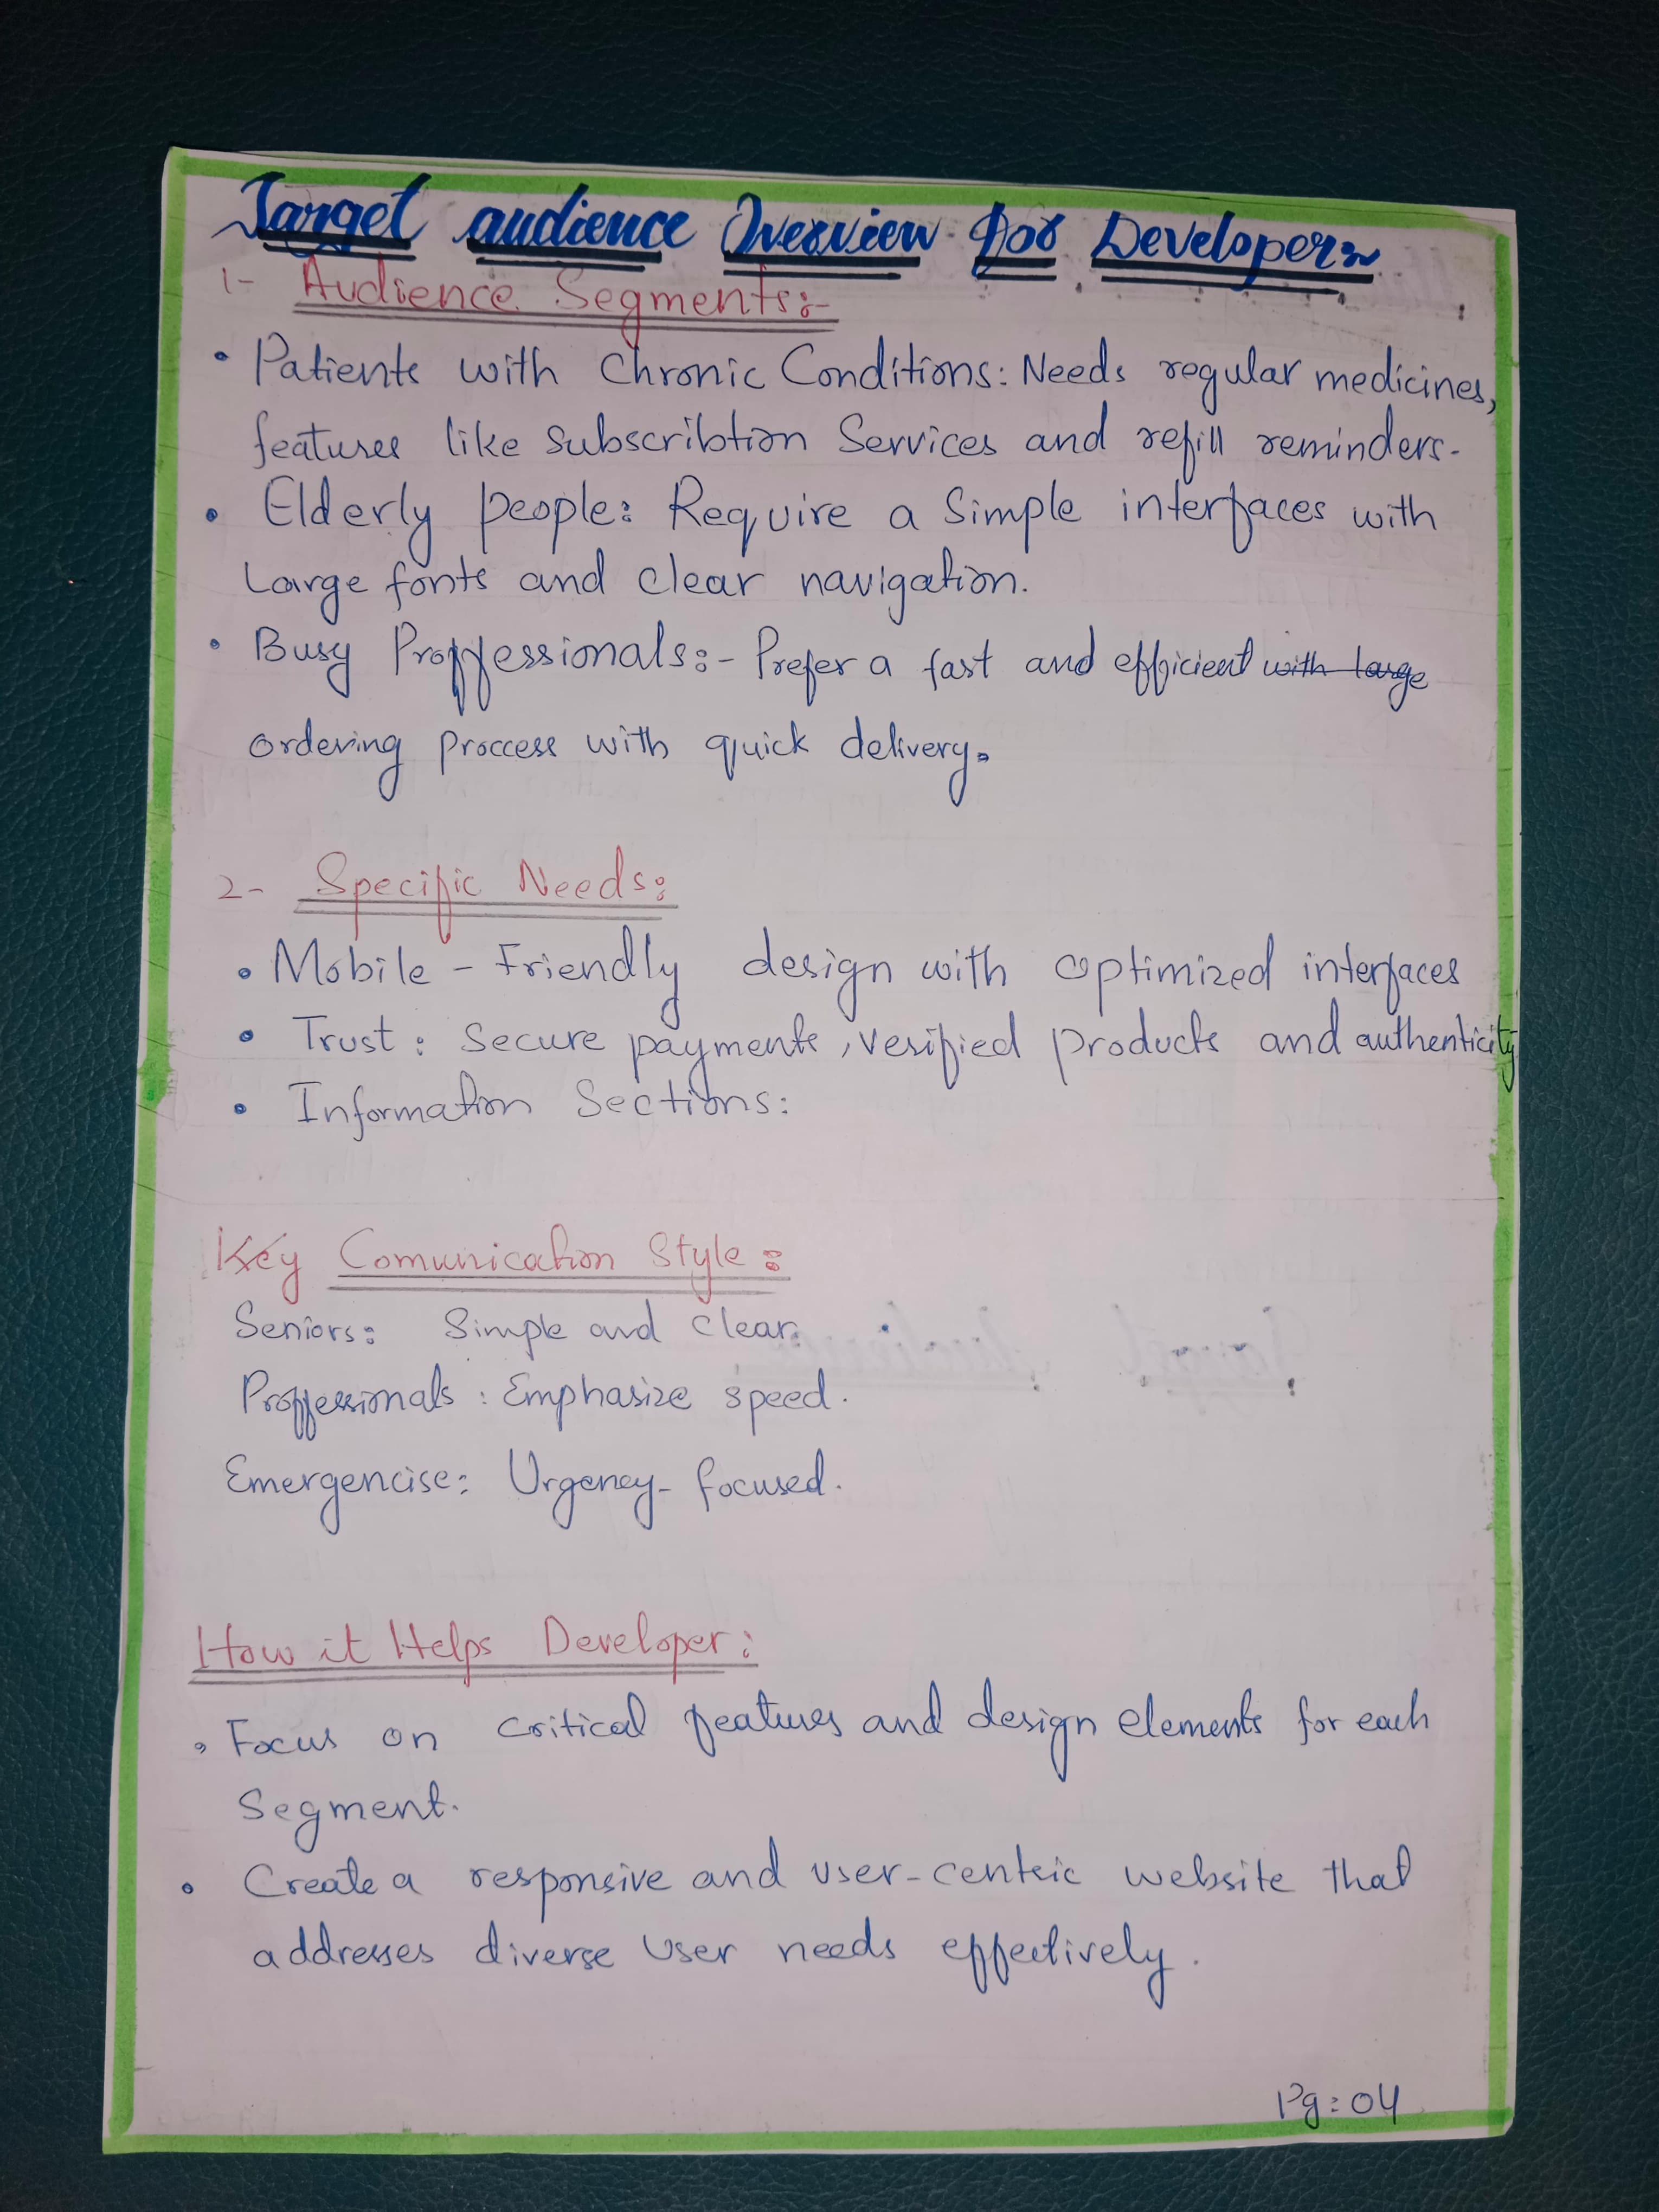 Target audience Overview for Developers
1- Audience Segments:-
• Patients with Chronic Conditions: Needs regular medicines,
features like Subscribtion Services and refill reminders.
• Elderly people: Require a Simple interfaces with
Large fonts and clear navigation.
• Busy Proffessionals:- Prefer a fast and efficient with large
ordering proccess with quick delivery.
2- Specific Needs:
• Mobile-Friendly design with optimized interfaces
• Trust: Secure payments, verified products and authenticity
• Information Sections:
Key Comunication Style:
Seniors: Simple and Clear.
Proffessionals: Emphasize speed.
Emergencise: Urgency-focused.
How it Helps Developer:
• Focus on critical features and design elements for each
Segment.
• Create a responsive and user-centric website that
addresses diverse User needs effectively.
Pg:04